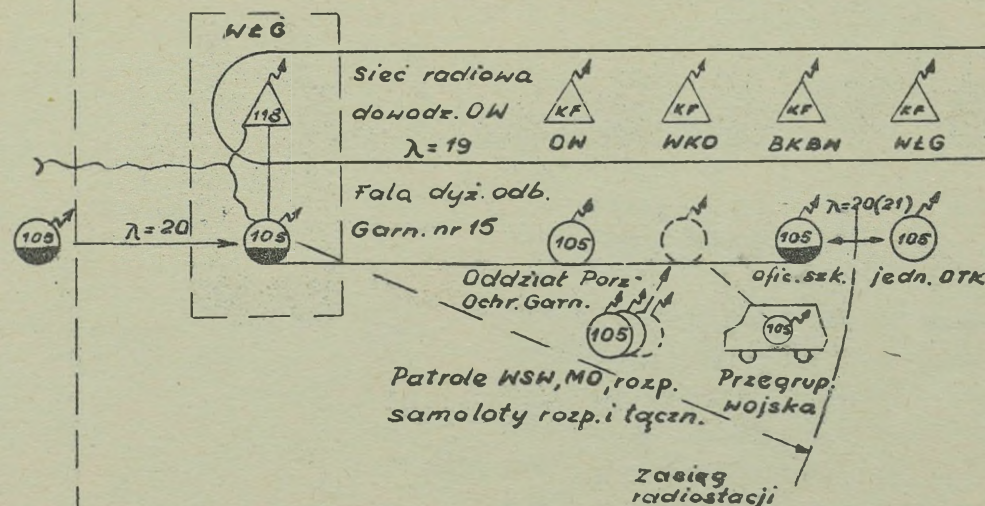 WŁG
118
Sieć radiowa
dowodz. OW
λ=19
KF KF KF KF
OW WKO BKBM WŁG
Fala dyż. odb.
Garn. nr 15
105
λ=20
105
105
105
λ=20(21)
105
Oddział Porz-
Ochr. Garn.
Ofic. szk.
jedn. OTK
105
105
Patrole WSW, MO, rozp.
samoloty rozp. i łączn.
Przegrup.
wojska
Zasięg
radiostacji